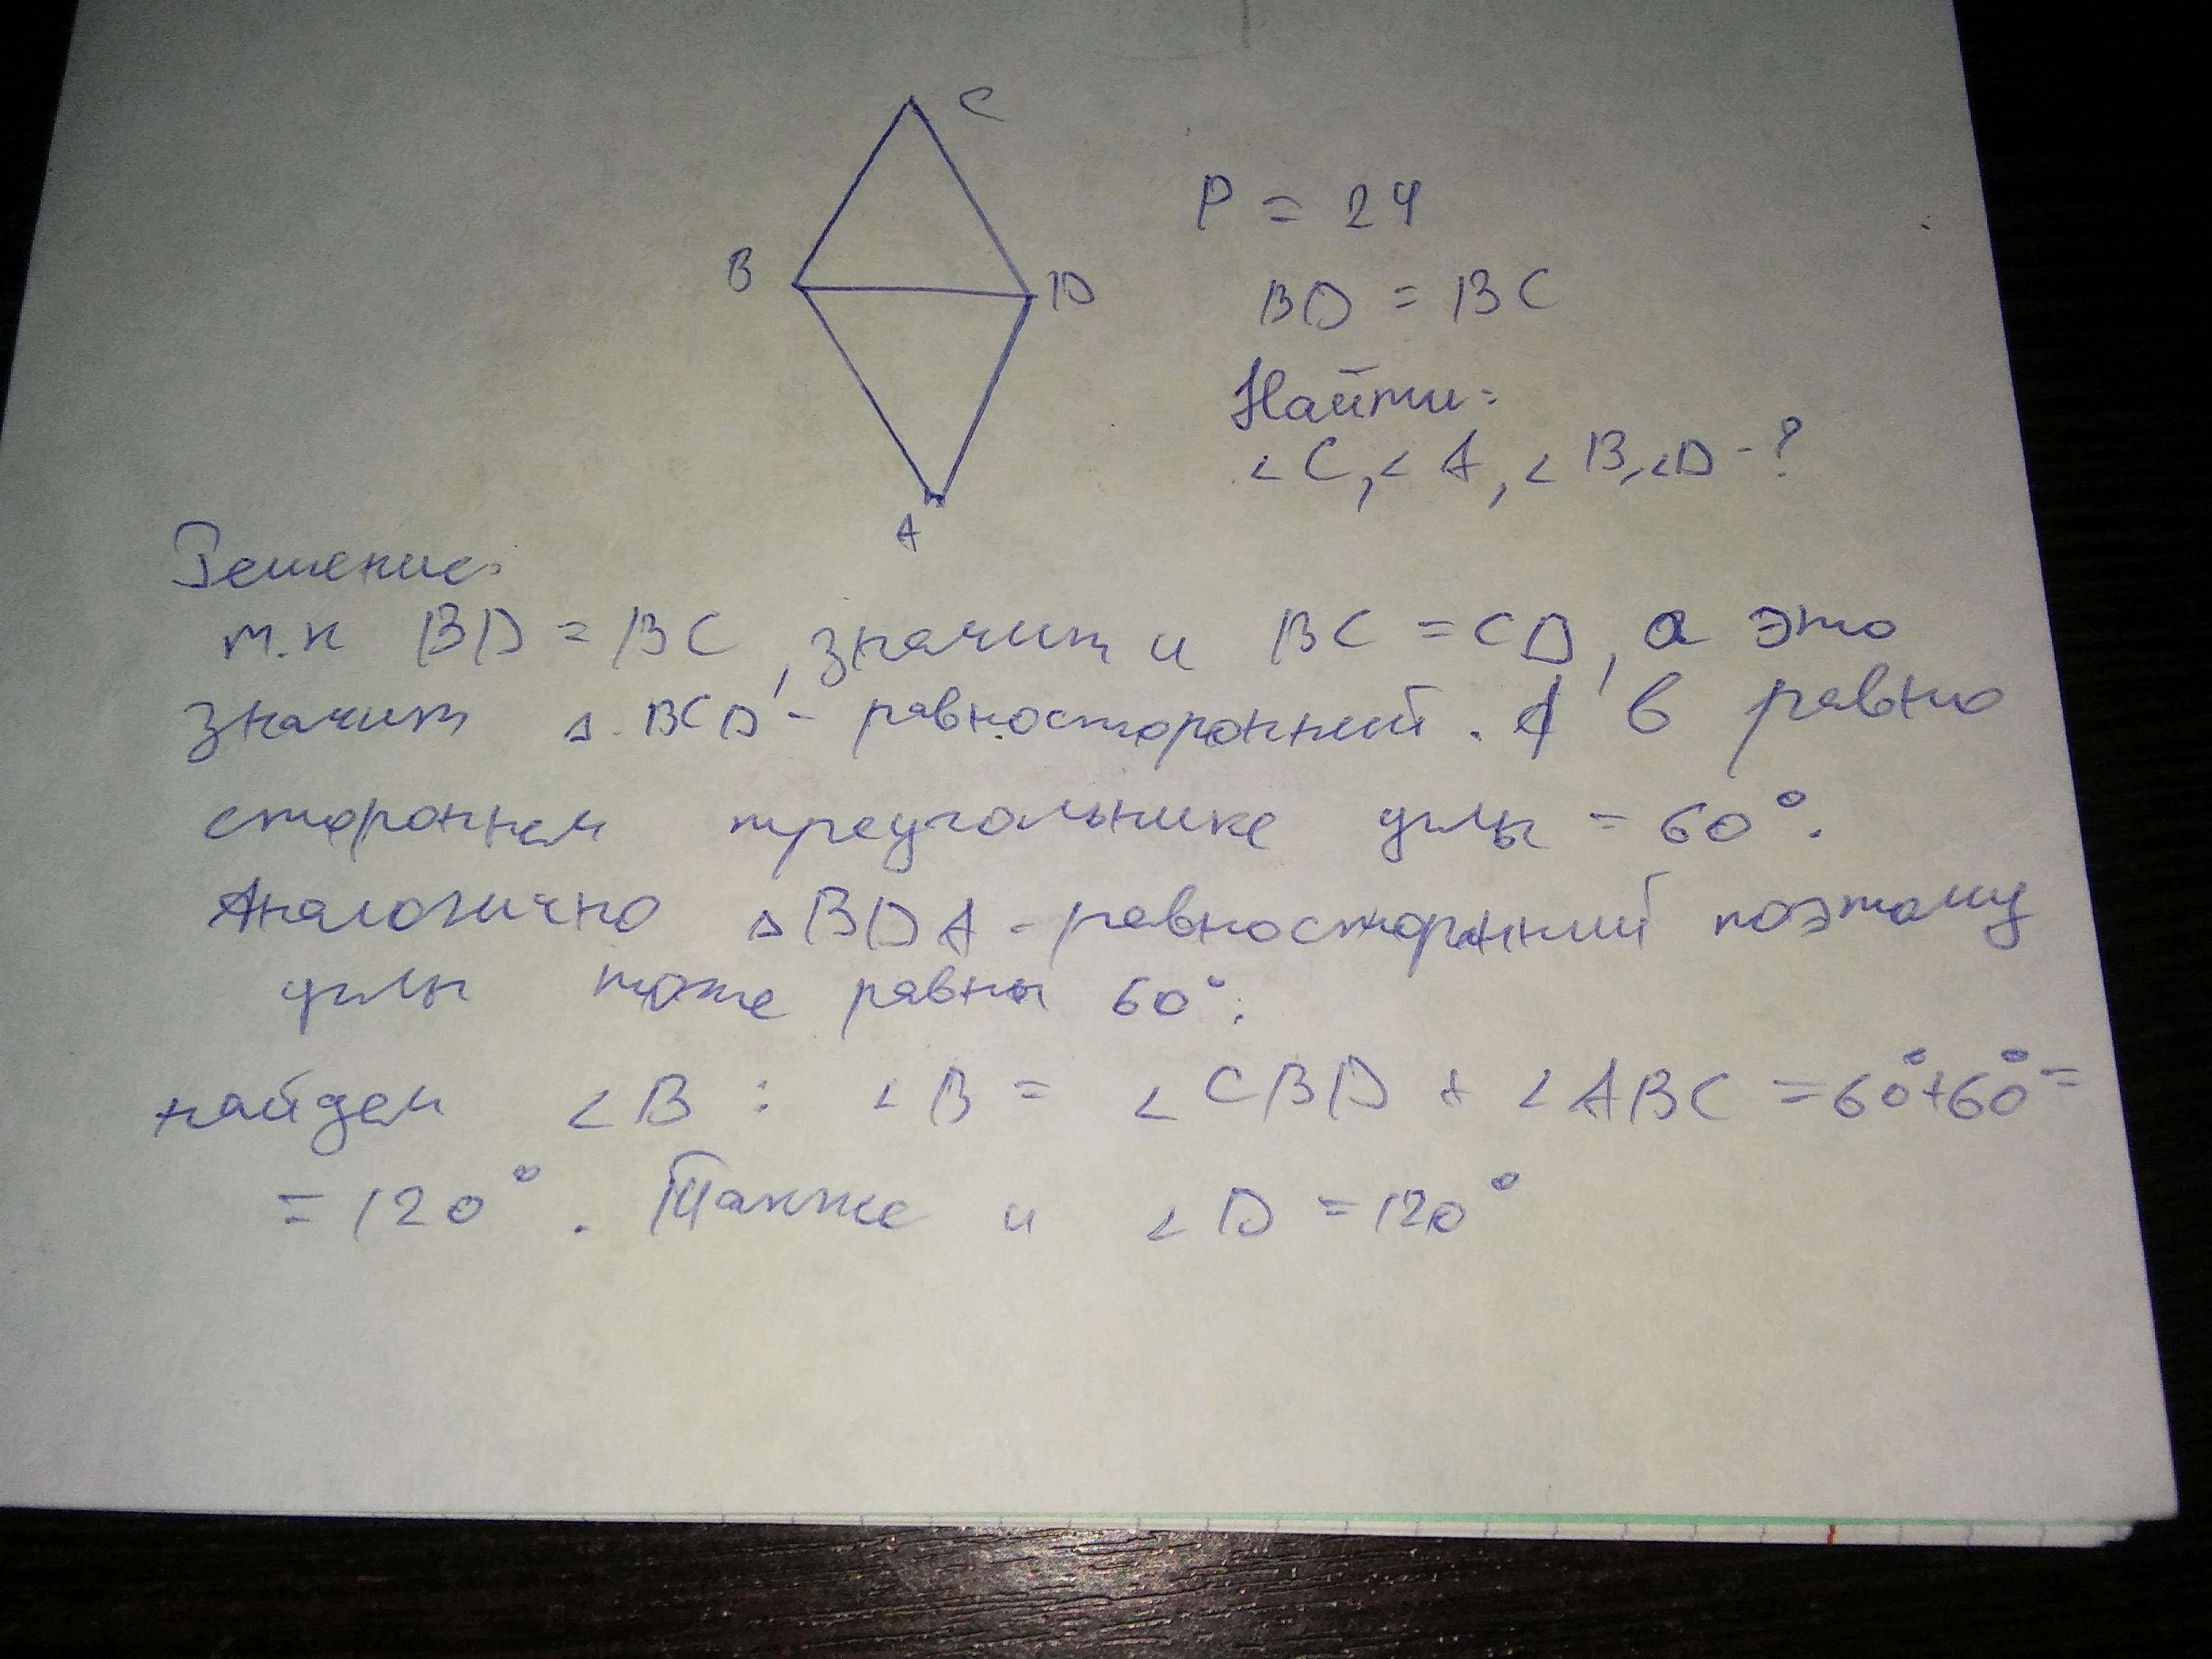 C
P = 24
B
D
BD = BC
Найти:
∠C, ∠A, ∠B, ∠D - ?
A
Решение:
т.к BD = BC, значит и BC = CD, а это
значит △ BCD - равносторонний. А в равно
стороннем треугольнике углы = 60°.
Аналогично △BDA - равносторонний поэтому
углы тоже равны 60°.
найдем ∠B : ∠B = ∠CBD + ∠ABC = 60°+60°=
= 120°. Также и ∠D = 120°